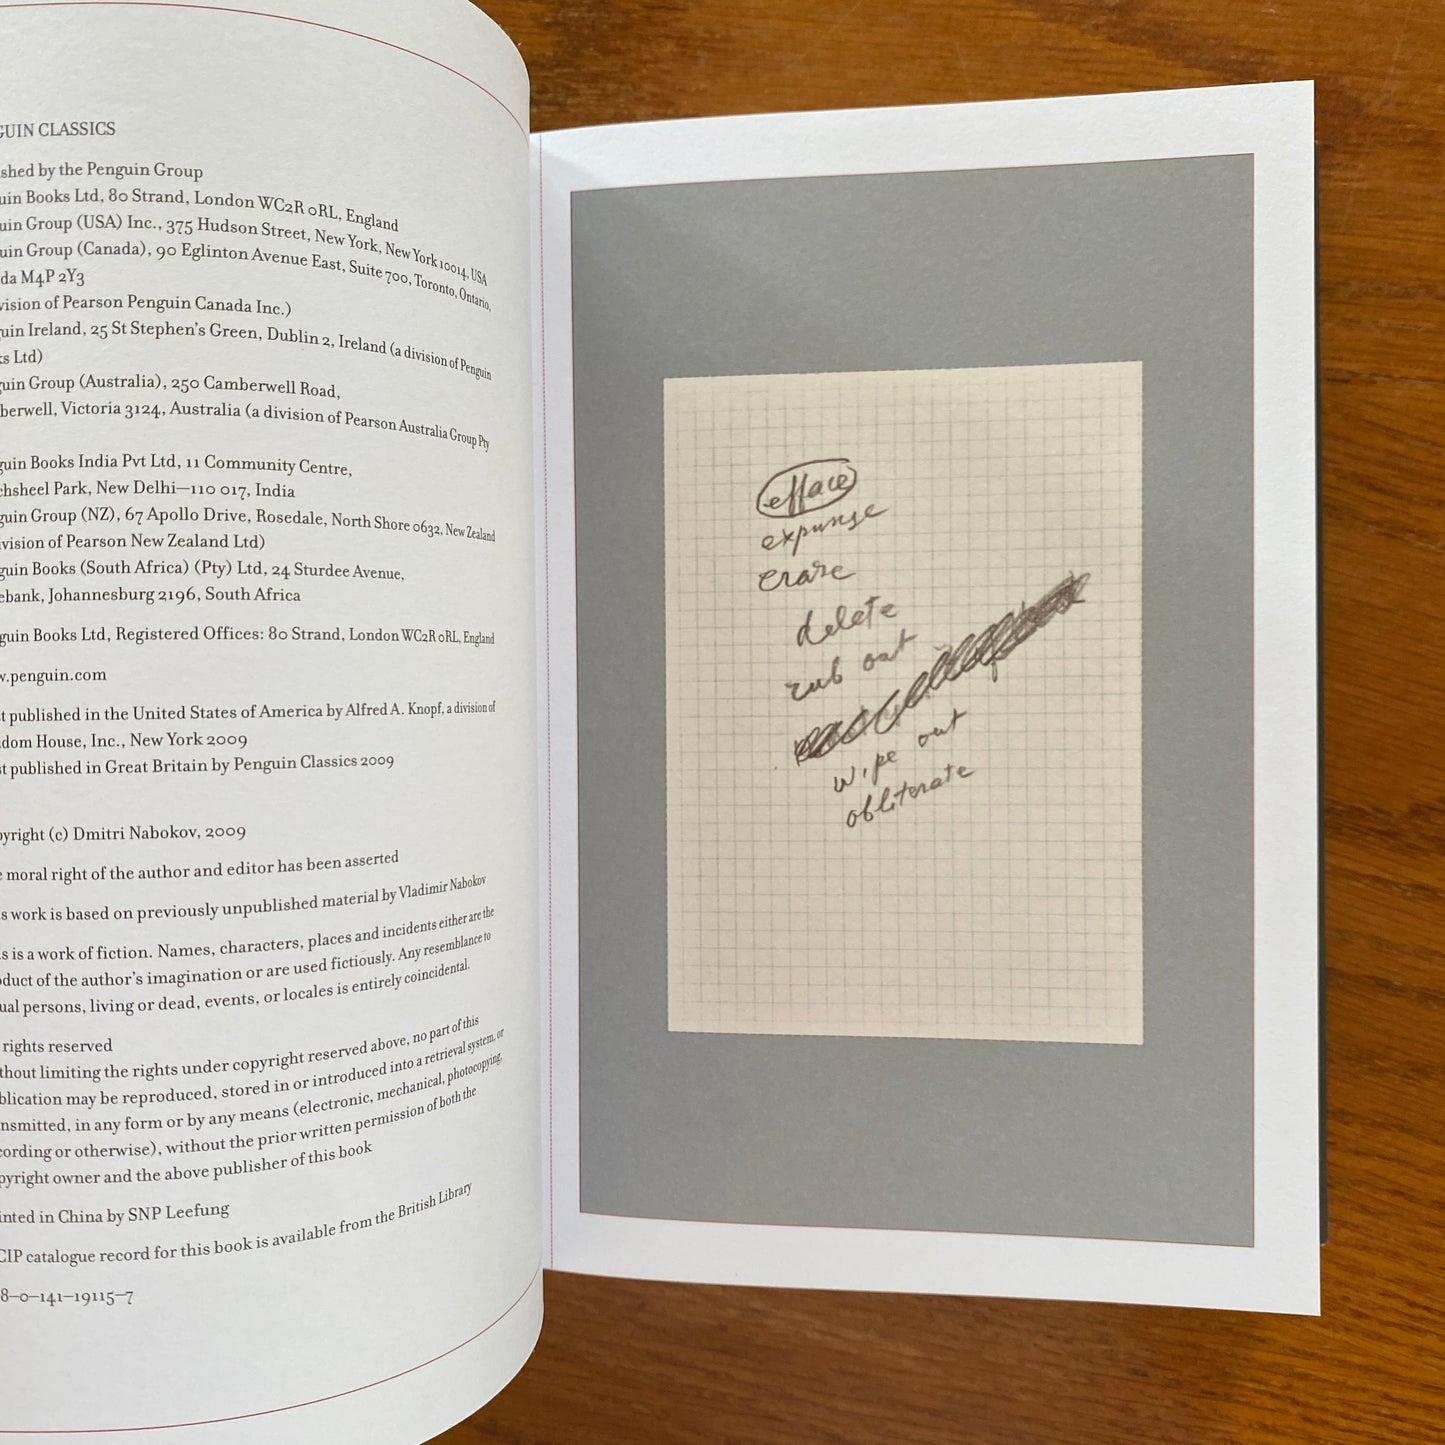 GUIN CLASSICS
shed by the Penguin Group
uin Books Ltd, 80 Strand, London WC2R 0RL, England
uin Group (USA) Inc., 375 Hudson Street, New York, New York 10014, USA
uin Group (Canada), 90 Eglinton Avenue East, Suite 700, Toronto, Ontario,
da M4P 2Y3
vision of Pearson Penguin Canada Inc.)
uin Ireland, 25 St Stephen's Green, Dublin 2, Ireland (a division of Penguin
s Ltd)
guin Group (Australia), 250 Camberwell Road,
berwell, Victoria 3124, Australia (a division of Pearson Australia Group Pty
guin Books India Pvt Ltd, 11 Community Centre,
chsheel Park, New Delhi—110 017, India
guin Group (NZ), 67 Apollo Drive, Rosedale, North Shore 0632, New Zealand
ivision of Pearson New Zealand Ltd)
guin Books (South Africa) (Pty) Ltd, 24 Sturdee Avenue,
ebank, Johannesburg 2196, South Africa
guin Books Ltd, Registered Offices: 80 Strand, London WC2R 0RL, England
w.penguin.com
t published in the United States of America by Alfred A. Knopf, a division of
dom House, Inc., New York 2009
t published in Great Britain by Penguin Classics 2009
pyright (c) Dmitri Nabokov, 2009
e moral right of the author and editor has been asserted
s work is based on previously unpublished material by Vladimir Nabokov
s is a work of fiction. Names, characters, places and incidents either are the
oduct of the author's imagination or are used fictiously. Any resemblance to
ual persons, living or dead, events, or locales is entirely coincidental.
rights reserved
thout limiting the rights under copyright reserved above, no part of this
blication may be reproduced, stored in or introduced into a retrieval system, or
nsmitted, in any form or by any means (electronic, mechanical, photocopying,
cording or otherwise), without the prior written permission of both the
pyright owner and the above publisher of this book
inted in China by SNP Leefung
CIP catalogue record for this book is available from the British Library
8–0–141–19115–7
efface
expunge
erase
delete
rub out
wipe out
obliterate